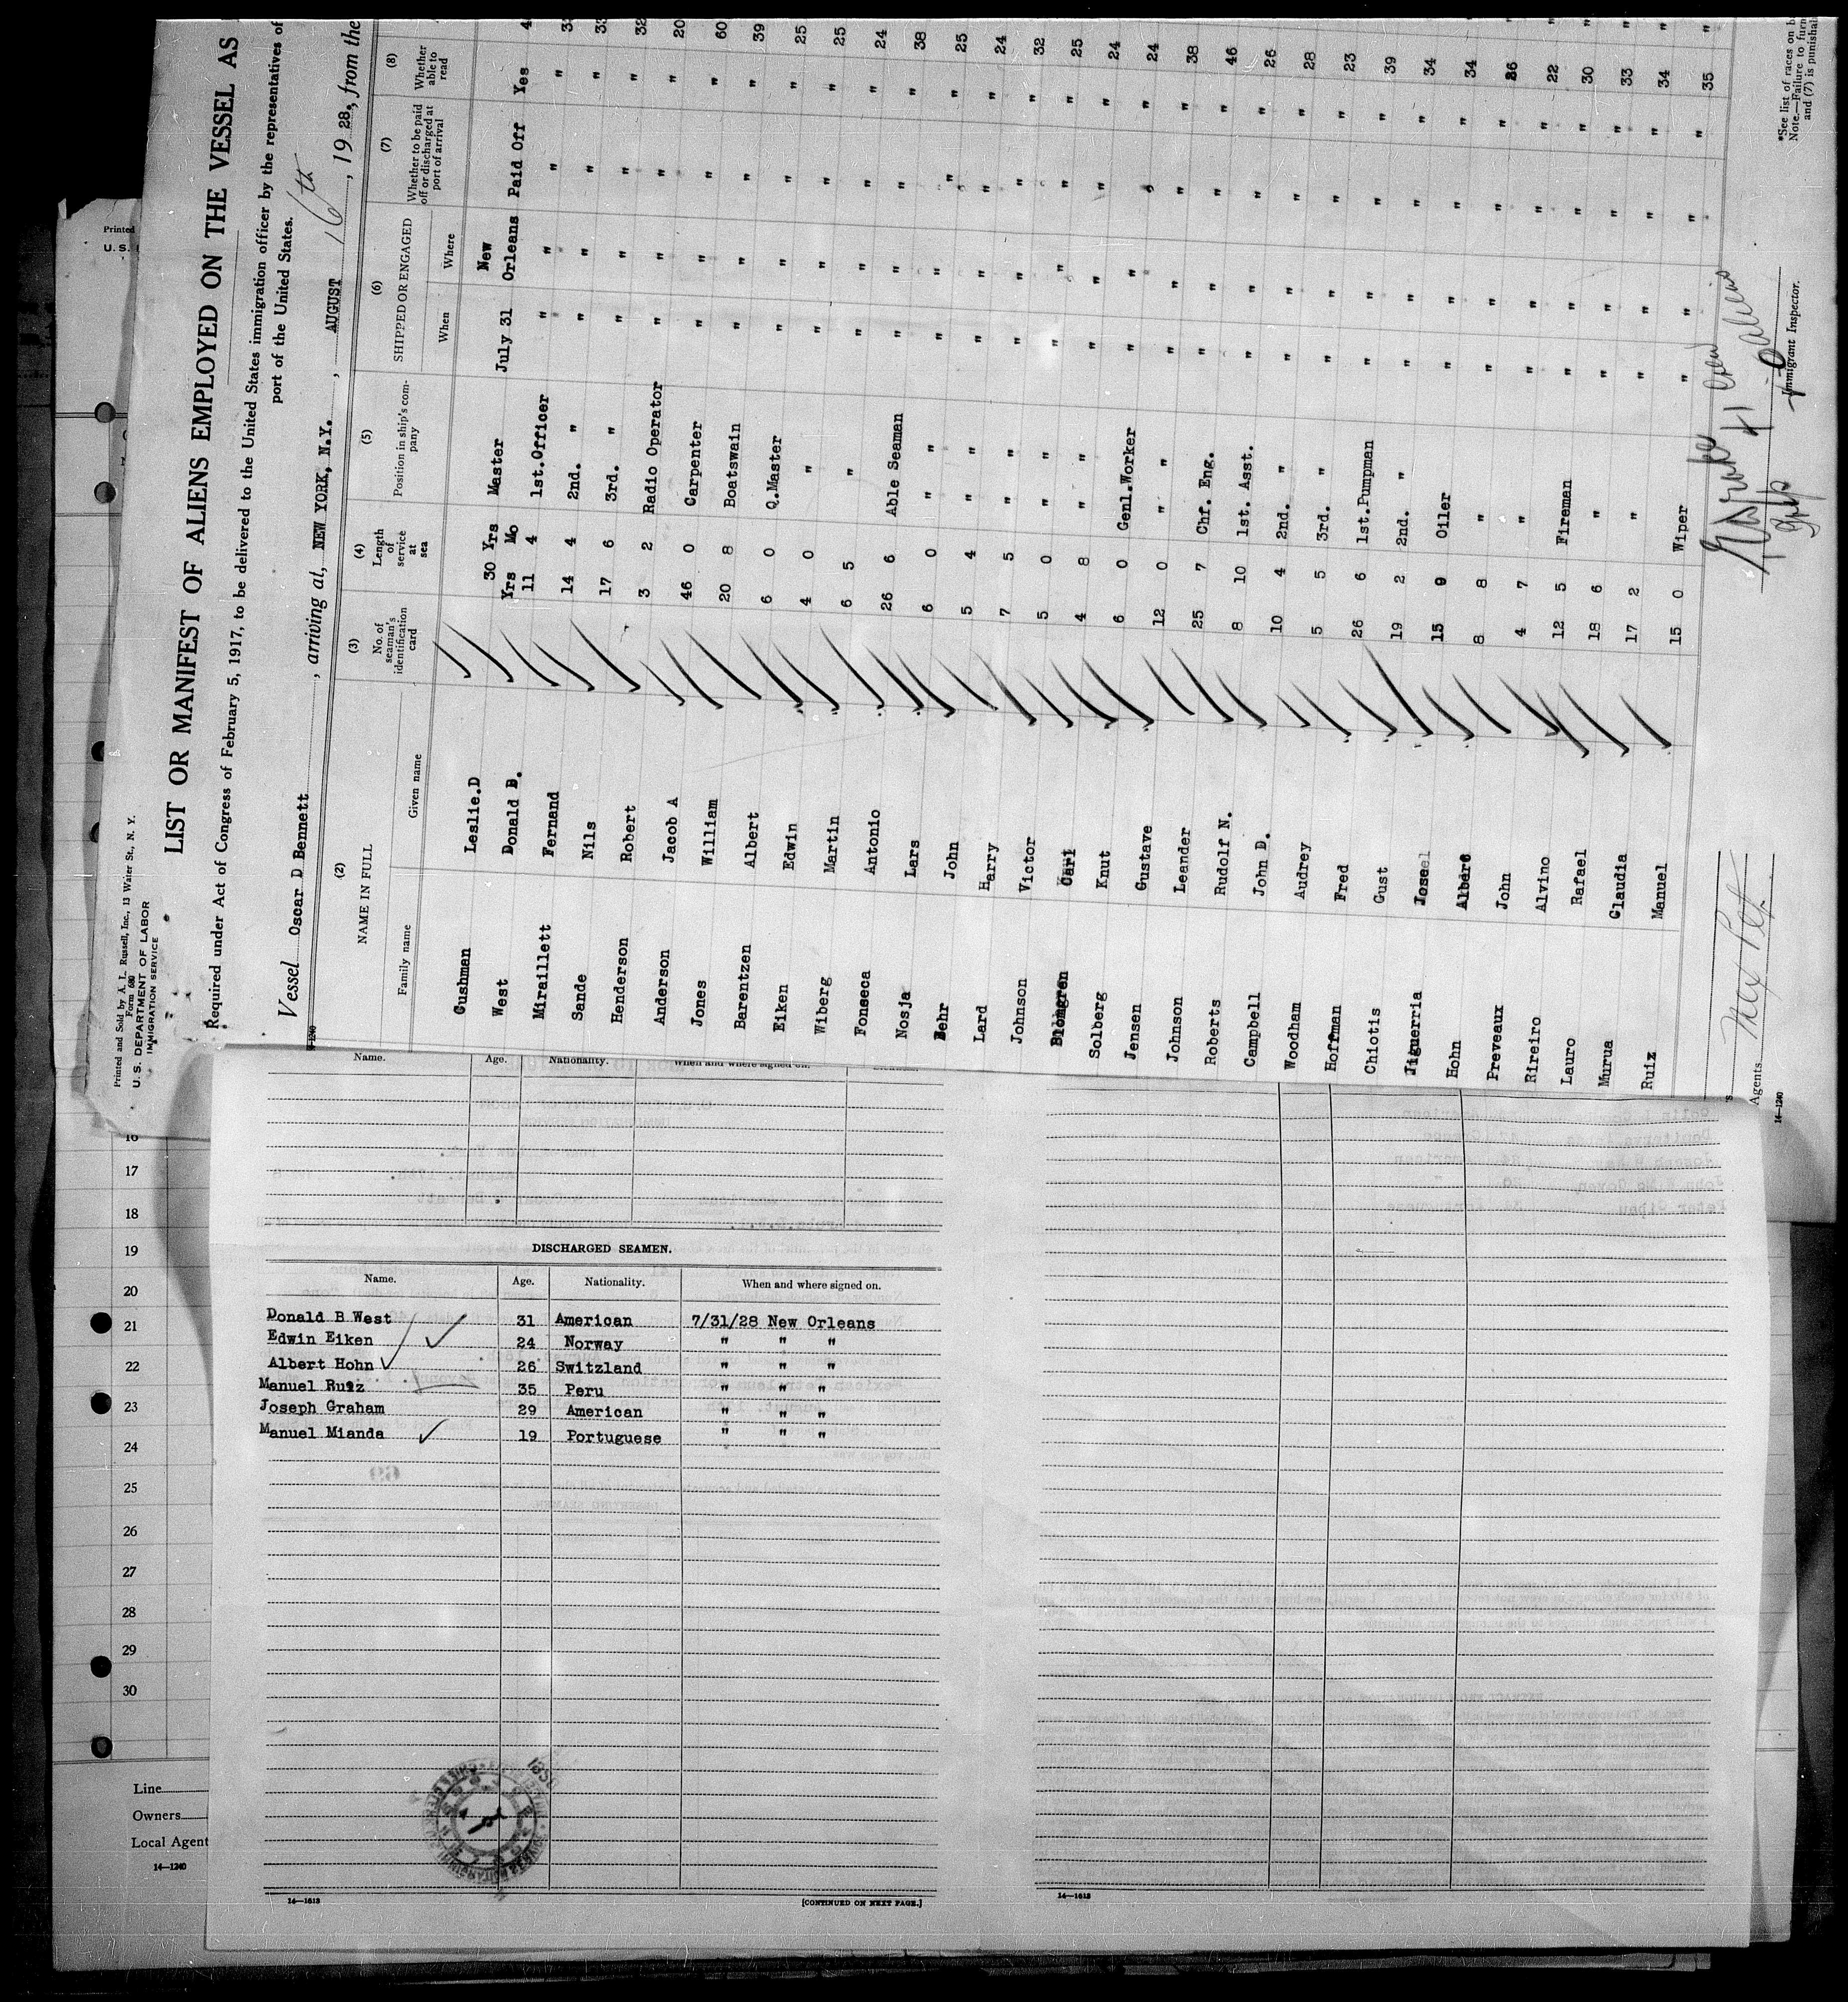 Printed and Sold by A. L. Russell, Inc., 13 Water St., N. Y.
Form 680
U. S. DEPARTMENT OF LABOR
IMMIGRATION SERVICE
LIST OR MANIFEST OF ALIENS EMPLOYED ON THE VESSEL AS
Required under Act of Congress of February 5, 1917, to be delivered to the United States immigration officer by the representatives of
port of the United States.
Vessel Oscar D Bennett, arriving at, NEW YORK, N.Y., AUGUST 16th, 1928, from the
(2) (3) (4) (5) (6) (7) (8)
NAME IN FULL No. of seaman's identification card Length of service at sea Position in ship's company SHIPPED OR ENGAGED Whether to be paid off or discharged at port of arrival Whether able to read
Family name Given name When Where
Cushman Leslie.D 30 Yrs Master New
Yrs Mo July 31 Orleans Paid Off Yes
West Donald B. 11 4 1st.Officer " " " "
Miraillett Fernand 14 4 2nd. " " " " "
Sande Nils 17 6 3rd. " " " " " 33
Henderson Robert 3 2 Radio Operator " " " " 32
Anderson Jacob A 46 0 Carpenter " " " " 20
Jones William 20 8 Boatswain " " " " 60
Barentzen Albert 6 0 Q.Master " " " " 39
Eiken Edwin 4 0 " " " " " 25
Wiberg Martin 6 5 " " " " " 25
Fonseca Antonio 26 6 Able Seaman " " " " 24
Nosja Lars 6 0 " " " " " 38
Behr John 5 4 " " " " " 25
Lard Harry 7 5 " " " " " 24
Johnson Victor 5 0 " " " " " 32
Blomgren Carl 4 8 " " " " " 25
Solberg Knut 6 0 Genl.Worker " " " " 24
Jensen Gustave 12 0 " " " " " 24
Johnson Leander 25 7 Chf. Eng. " " " " 38
Roberts Rudolf N. 8 10 1st. Asst. " " " " 46
Campbell John D. 10 4 2nd. " " " " " 26
Woodham Audrey 5 5 3rd. " " " " " 28
Hoffman Fred 26 6 1st.Pumpman " " " " 23
Chiotis Gust 19 2 2nd. " " " " " 39
Jiguerria 15 9 Oiler " " " " 34
Hohn Albert 8 8 " " " " " 34
Preveaux John 4 7 " " " " " 26
Rireiro Alvino 12 5 Fireman " " " " 22
Lauro Rafael 18 6 " " " " " 30
Murua Claudia 17 2 " " " " " 33
Ruiz Manuel 15 0 Wiper " " " " 34
" 35
Agents Mex Pet.
14—1240
41 Crew
Immigrant Inspector.
*See list of races on b
Note.—Failure to furn
and (7) is punishab
Printed
U. S.
Name. Age. Nationality. When and where signed on.
DISCHARGED SEAMEN.
Name. Age. Nationality. When and where signed on.
Donald B West 31 American 7/31/28 New Orleans
Edwin Eiken 24 Norway " " "
Albert Hohn 26 Switzland " " "
Manuel Ruiz 35 Peru " " "
Joseph Graham 29 American " " "
Manuel Mianda 19 Portuguese " " "
14—1613 [CONTINUED ON NEXT PAGE.] 14—1613
16
17
18
19
20
21
22
23
24
25
26
27
28
29
30
Line
Owners
Local Agent
14—1240